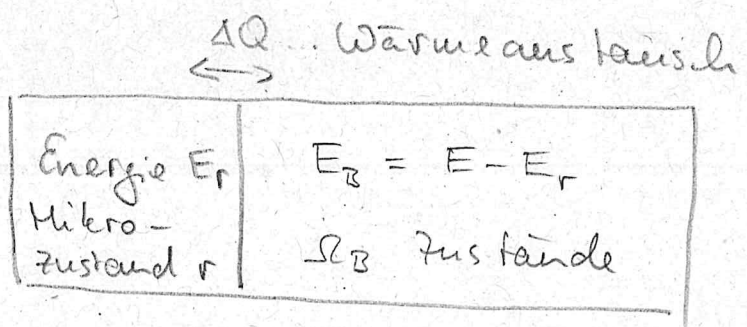 ΔQ ... Wärmeaustausch
Energie E_r
Mikro-
zustand r
E_B = E - E_r
Ω_B Zustände